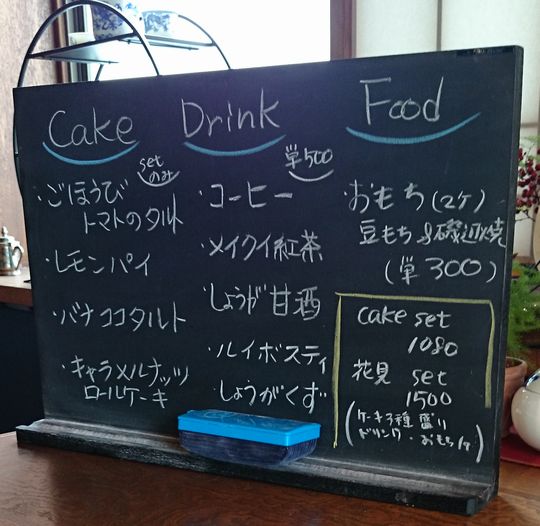 Cake
set
のみ
・ごほうび
トマトのタルト
・レモンパイ
・バナナココタルト
・キャラメルナッツ
ロールケーキ
Drink
単500
・コーヒー
・メイクイ紅茶
・しょうが甘酒
・ルイボスティ
・しょうがくず
Food
・おもち(2ケ)
豆もち&磯辺焼
(単300)
cake set
1080
花見 set
1500
(ケーキ3種盛り
ドリンク・おもち1ヶ)